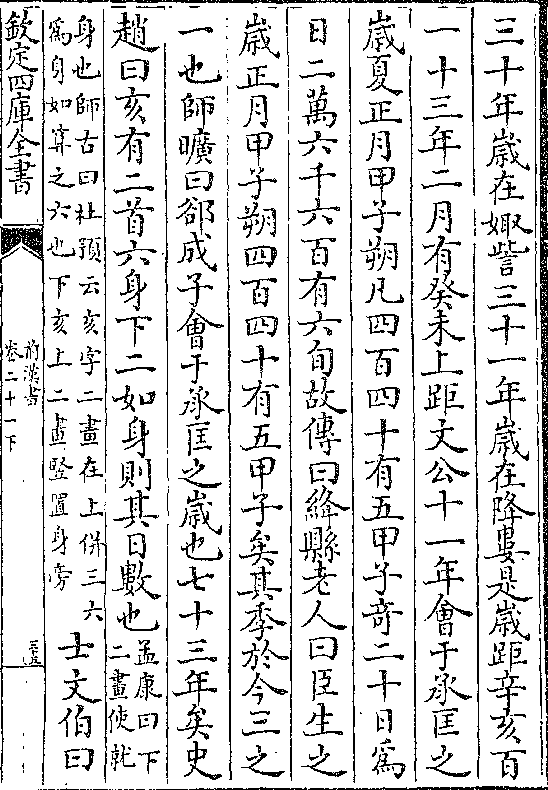 三十年歳在娵訾三十一年歳在降婁是歳距辛亥百
一十三年二月有癸未上距文公十一年會于承匡之
歳夏正月甲子朔凡四百四十有五甲子奇二十日為
日二萬六千六百有六旬故傳曰絳縣老人曰臣生之
歳正月甲子朔四百四十有五甲子矣其季於今三之
一也師曠曰郤成子會于承匡之歳也七十三年矣史
趙曰亥有二首六身下二如身則其日數也孟康曰下
二畫使就
身也師古曰杜預云亥字二畫在上併三六
為身如算之六也下亥上二畫竪置身旁
士文伯曰
欽定四庫全書
前漢書
卷二十一下
三十五